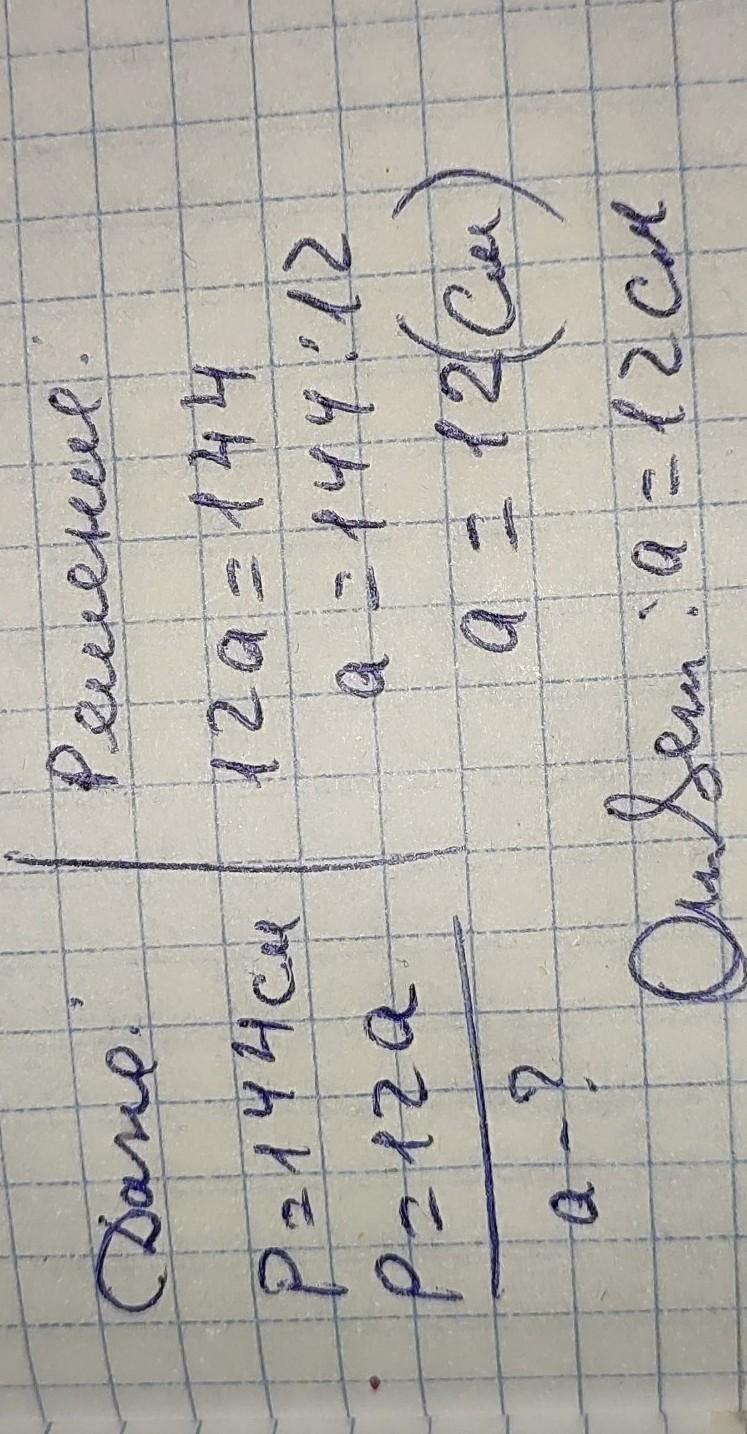 Дано:
P=144см
P=12a
a-?
Решение:
12a=144
a=144:12
a=12(см)
Ответ: a=12см